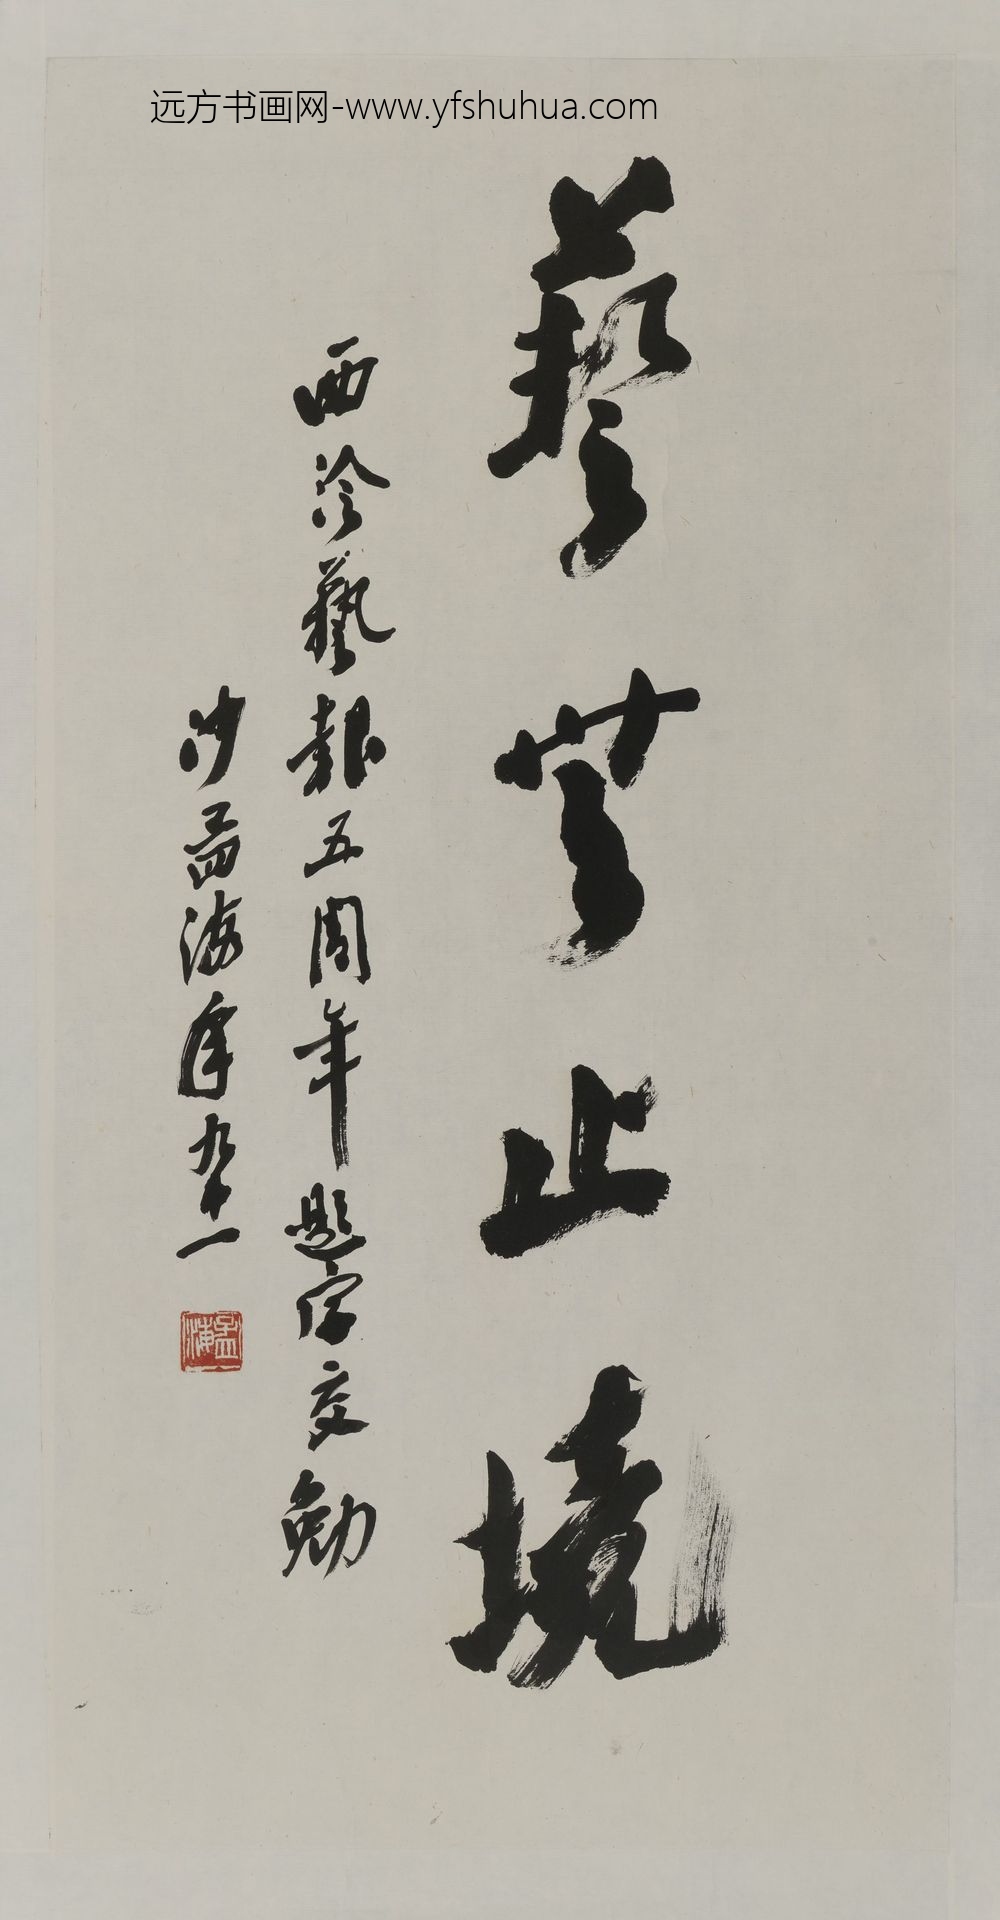 远方书画网-www.yfshuhua.com
藝無止境
西泠藝報五周年題字交勉
沙孟海年九十一
孟海